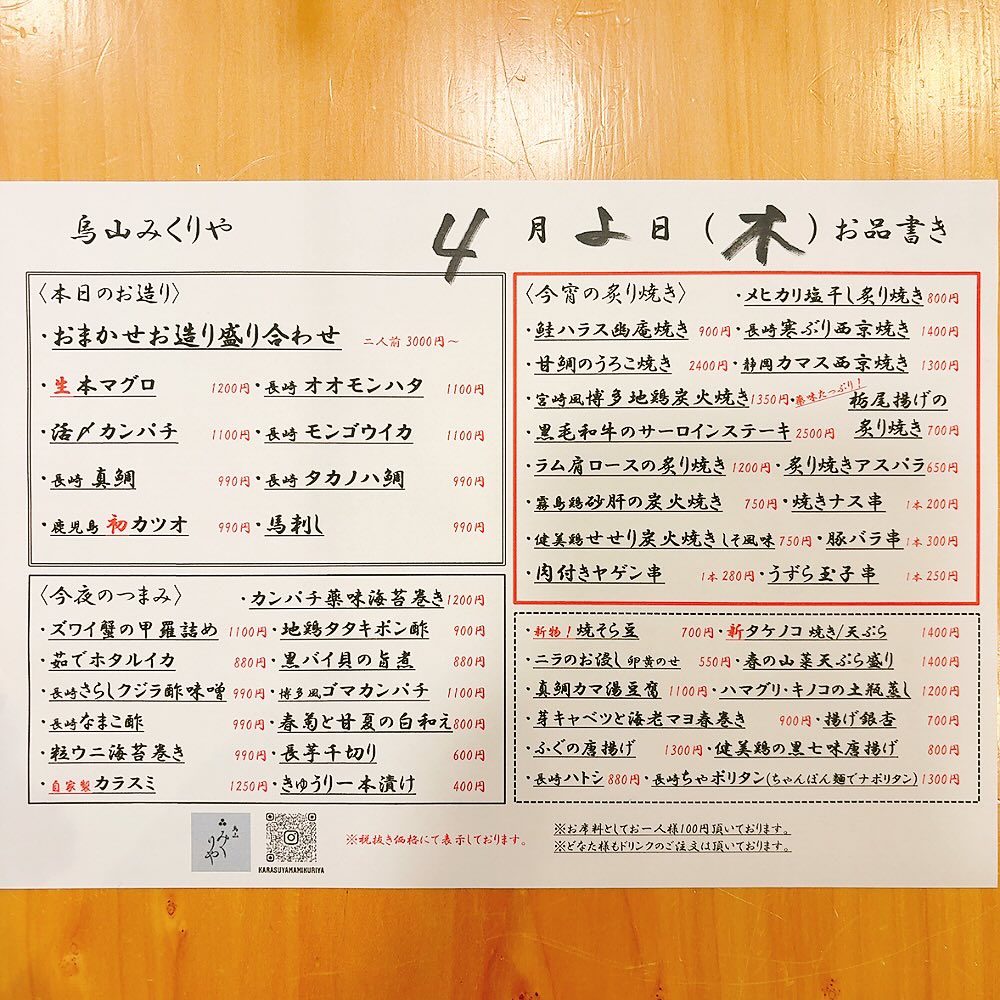 烏山みくりや
4月 日(木)お品書き
〈本日のお造り〉
・おまかせお造り盛り合わせ 二人前 3000円～
・生本マグロ 1200円
・長崎 オオモンハタ 1100円
・活〆カンパチ 1100円
・長崎 モンゴウイカ 1100円
・長崎 真鯛 990円
・長崎 タカノハ鯛 990円
・鹿児島 初カツオ 990円
・馬刺し 990円
〈今夜のつまみ〉
・カンパチ薬味海苔巻き 1200円
・ズワイ蟹の甲羅詰め 1100円
・地鶏タタキポン酢 900円
・茹でホタルイカ 880円
・黒バイ貝の旨煮 880円
・長崎さらしクジラ酢味噌 990円
・博多風ゴマカンパチ 1100円
・長崎なまこ酢 990円
・春菊と甘夏の白和え 800円
・粒ウニ海苔巻き 990円
・長芋千切り 600円
・自家製カラスミ 1250円
・きゅうり一本漬け 400円
〈今宵の炙り焼き〉
・メヒカリ塩干し炙り焼き 800円
・鮭ハラス幽庵焼き 900円
・長崎寒ぶり西京焼き 1400円
・甘鯛のうろこ焼き 2400円
・静岡カマス西京焼き 1300円
・宮崎風博多地鶏炭火焼き 1350円
・薬味たっぷり! 栃尾揚げの
炙り焼き 700円
・黒毛和牛のサーロインステーキ 2500円
・ラム肩ロースの炙り焼き 1200円
・炙り焼きアスパラ 650円
・霧島鶏砂肝の炭火焼き 750円
・焼きナス串 1本 200円
・健美鶏せせり炭火焼きしそ風味 750円
・豚バラ串 1本 300円
・肉付きヤゲン串 1本 280円
・うずら玉子串 1本 250円
・新物!焼そら豆 700円
・新タケノコ 焼き/天ぷら 1400円
・ニラのお浸し 卵黄のせ 550円
・春の山菜天ぷら盛り 1400円
・真鯛カマ湯豆腐 1100円
・ハマグリ・キノコの土瓶蒸し 1200円
・芽キャベツと海老マヨ春巻き 900円
・揚げ銀杏 700円
・ふぐの唐揚げ 1300円
・健美鶏の黒七味唐揚げ 800円
・長崎ハトシ 880円
・長崎ちゃポリタン(ちゃんぽん麺でナポリタン) 1300円
烏山
みくりや
KARASUYAMAMIKURIYA
※税抜き価格にて表示しております。
※お席料としてお一人様100円頂いております。
※どなた様もドリンクのご注文は頂いております。